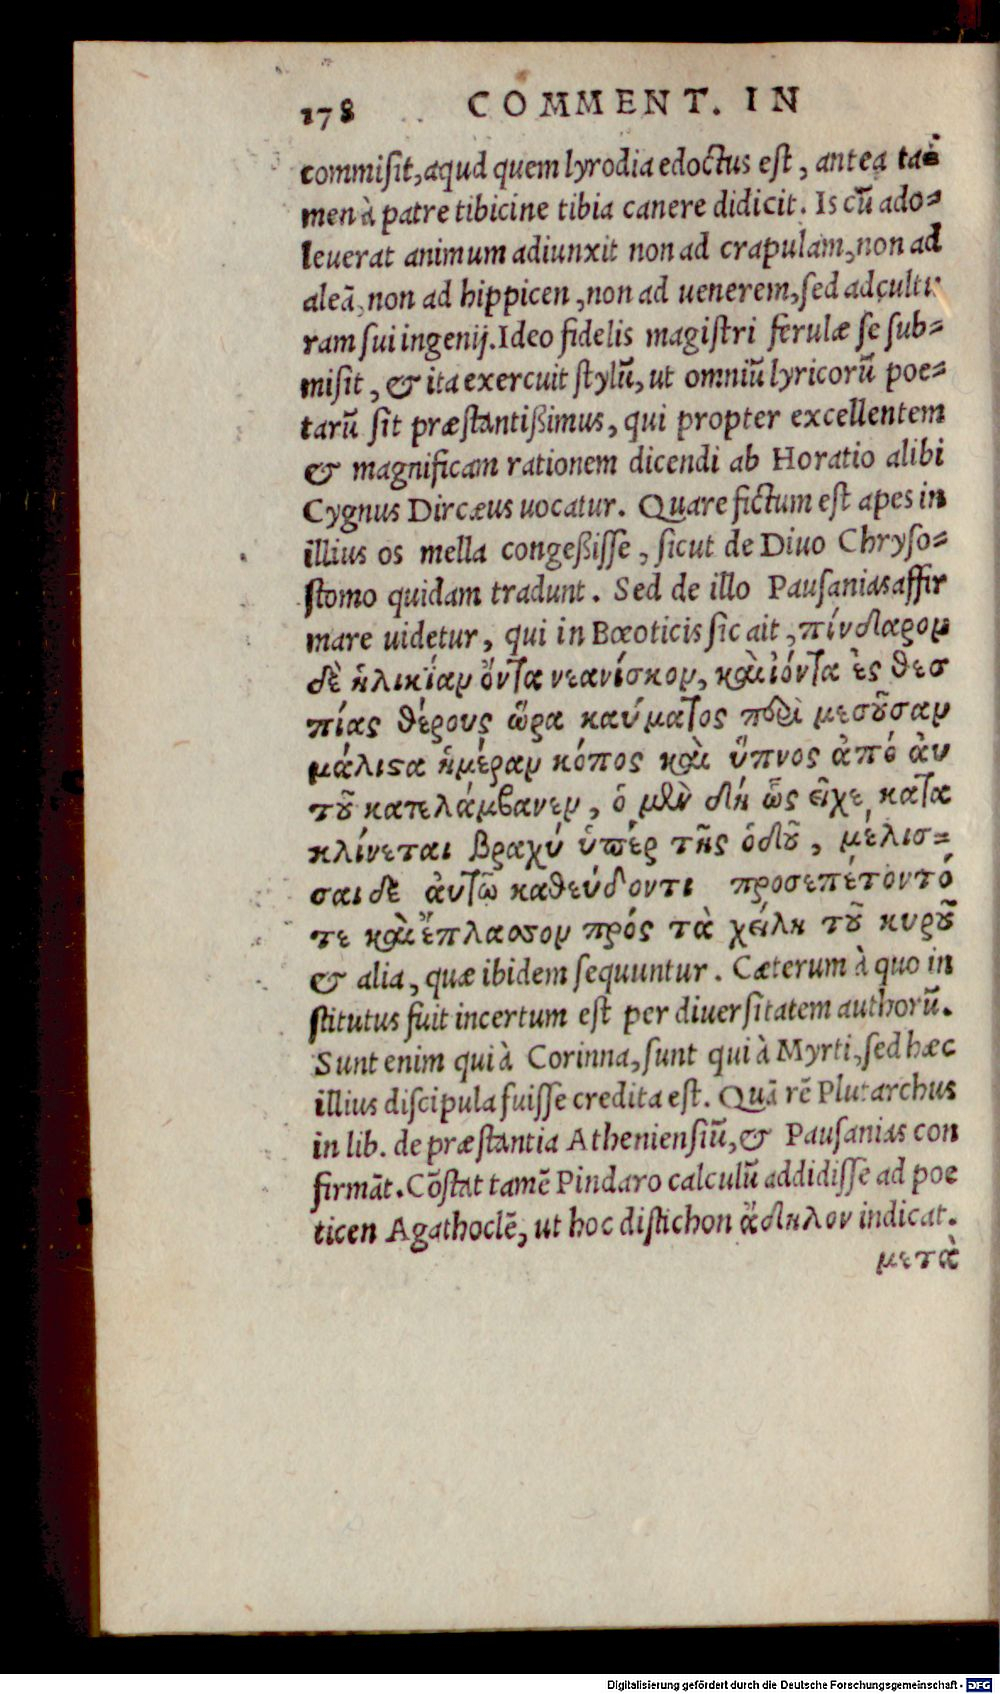 178 COMMENT. IN
commiſit, aqud quem lyrodia edoctus eſt, antea ta⸗
men à patre tibicine tibia canere didicit. Is cũ ado⸗
leuerat animum adiunxit non ad crapulam, non ad
aleã, non ad hippicen, non ad uenerem, ſed ad cultu
ram ſui ingenij. Ideo fidelis magiſtri ferulæ ſe ſub⸗
miſit, & ita exercuit ſtylũ, ut omniũ lyricorũ poe⸗
tarũ ſit præſtantißimus, qui propter excellentem
& magnificam rationem dicendi ab Horatio alibi
Cygnus Dircæus uocatur. Quare fictum eſt apes in
illius os mella congeßiſſe, ſicut de Diuo Chryſo⸗
ſtomo quidam tradunt. Sed de illo Pauſanias affir
mare uidetur, qui in Bœoticis ſic ait, πίνδαρον
δὲ ἡλικίαν ὄντα νεανίσκον, καὶ ἰόντα ἐς θεσ
πίας θέρους ὥρα καύματος περὶ μεσοῦσαν
μάλιϛα ἡμέραν κόπος καὶ ὕπνος ἀπό ἀυ
τοῦ κατελάμβανεν, ὁ μὲν δὴ ὧς εἶχε κατα
κλίνεται βραχύ ὑπέρ τῆς ὁδοῦ, μέλισ⸗
σαι δὲ ἀυτῶ καθεύδοντι προσεπέτοντό
τε καὶ ἔπλασσον πρός τὰ χείλη τοῦ κυροῦ
& alia, quæ ibidem ſequuntur. Cæterum à quo in
ſtitutus fuit incertum eſt per diuerſitatem authorũ.
Sunt enim qui à Corinna, ſunt qui à Myrti, ſed hæc
illius diſcipula fuiſſe credita eſt. Quã rẽ Plutarchus
in lib. de præſtantia Athenienſiũ, & Pauſanias con
firmãt. Cõſtat tamẽ Pindaro calculũ addidiſſe ad poe
ticen Agathoclẽ, ut hoc diſtichon ἄδηλον indicat.
μετὰ
Digitalisierung gefördert durch die Deutsche Forschungsgemeinschaft - DFG